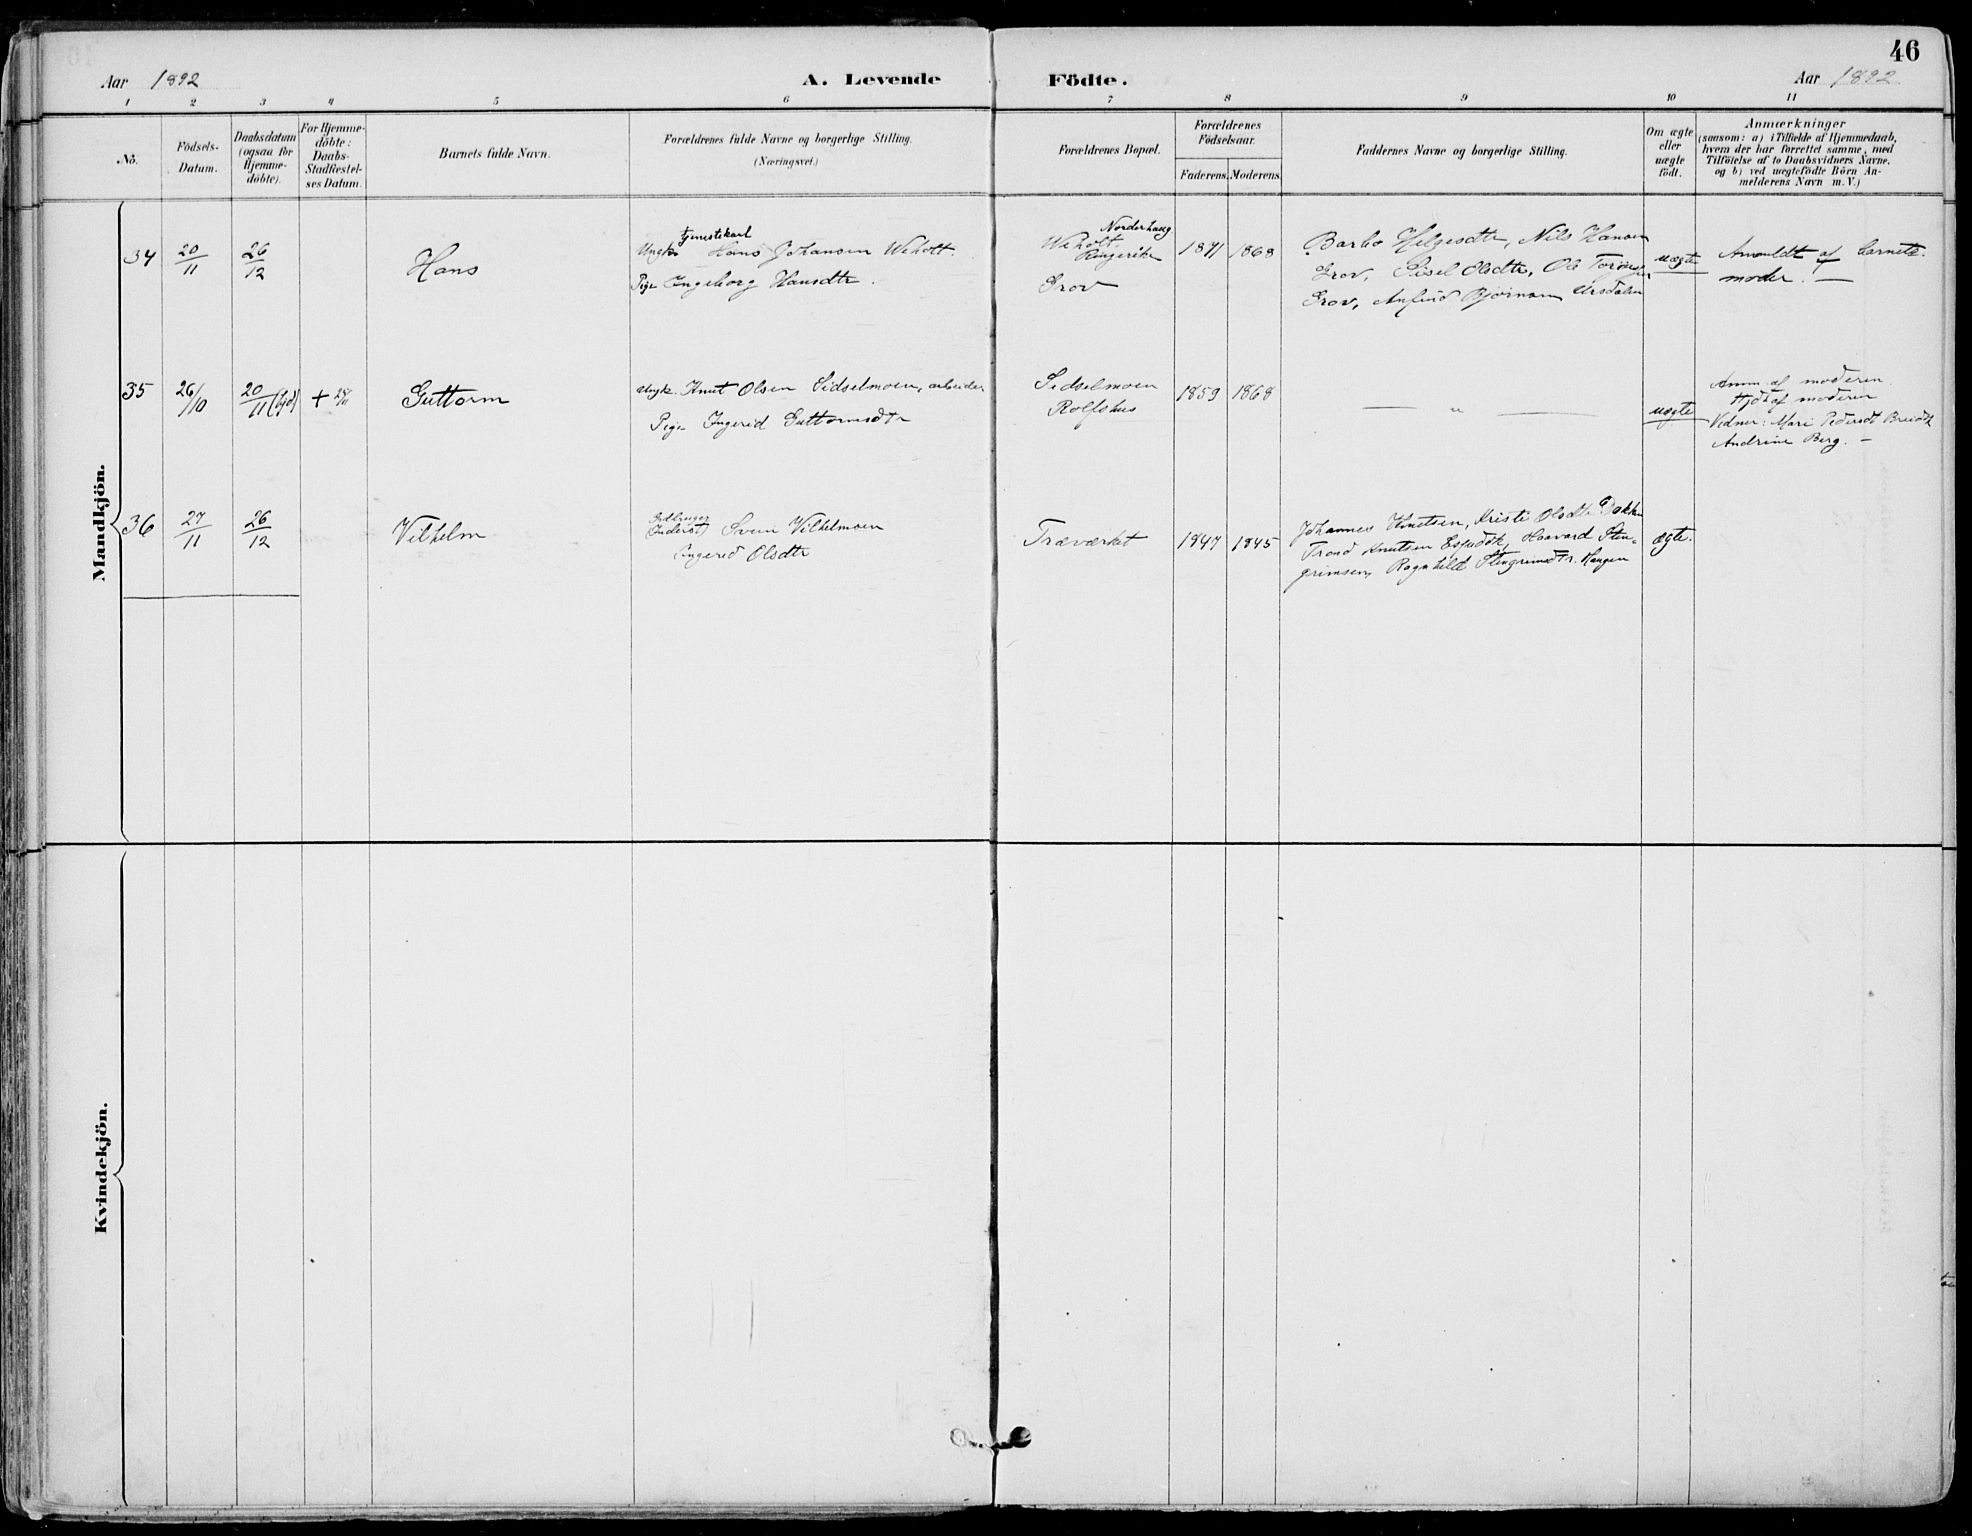 46
Aar 1892
A. Levende Födte.
Aar 1892
1 2 3 4 5 6 7 8 9 10 11
No.
Födsels-
Datum.
Daabsdatum
(ogsaa for
Hjemme-
döbte).
For Hjemme-
döbte:
Daabs-
Stadfæstel-
ses Datum.
Barnets fulde Navn.
Forældrenes fulde Navne og borgerlige Stilling.
(Næringsvei.)
Forældrenes Bopæl.
Forældrenes
Födselsaar.
Faderens. Moderens.
Faddernes Navne og borgerlige Stilling.
Om ægte
eller
uægte
födt.
Anmærkninger
(saasom: a) i Tilfælde af Hjemmedaab,
hvem der har forrettet samme, med
Tilföielse af to Daabsvidners Navne.
og b) ved uægtefödte Börn An-
melderens Navn m. V.)
Mandkjön.
34
20/11
26/12
Hans
tjenestekarl
Ungk. Hans Johansen Weholt.
Pige Ingeborg Hansdtr.
Norderhaug
Weholt.
Ringerike
Grov
1871 1868
Barbo Helgesdtr, Nils Hansen
Grov, Sissel Olsdtr, Ole
Grov, Bjørnsen
uægte
Anmeldt af barnets
moder. —
35
26/10
20/11 (hjd)
+
Guttorm
Ungk. Knut Olsen Sidselmoen, arbeider
Pige Ingerid Guttormsdtr
Sidselmoen
Rolfshus
1859 1868
— " —
uægte
Anm. af moderen.
Hjdt af moderen
Vidner: Mari Pedersdt
Andrine Berg. —
36
27/11
26/12
Vilhelm
Inderst Svein Vilhelmsen
Ingerid Olsdtr
Træværket
1847 1845
Johannes Knutsen, Kristi Olsdtr
Trond Knutsen Haavard Sten-
grimsen, Ragnhild Stengrimsdtr. Haugen
ægte.
Kvindekjön.